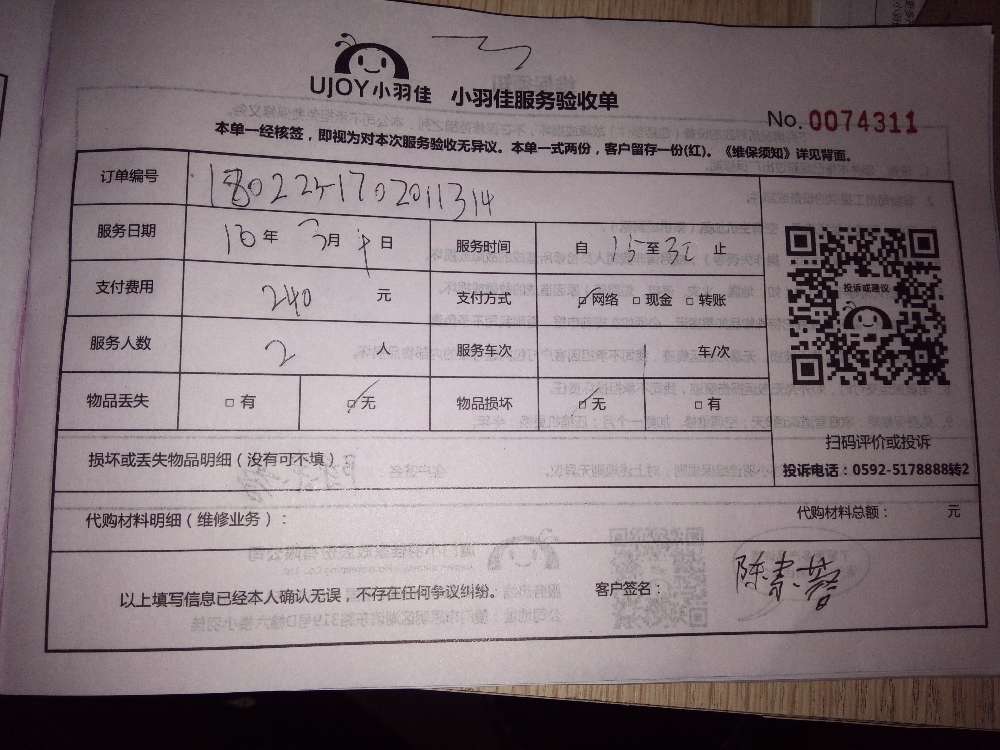 UJOY小羽佳 小羽佳服务验收单
No. 0074311
本单一经核签，即视为对本次服务验收无异议。本单一式两份，客户留存一份(红)。《维保须知》详见背面。
订单编号 1802251702011314
服务日期 年 3月 日 服务时间 自 15 至 止
支付费用 240 元 支付方式 □网络 □现金 □转账
投诉或建议
服务人数 2 人 服务车次 1 车/次
物品丢失 □有 □无 物品损坏 □无 □有
扫码评价或投诉
损坏或丢失物品明细（没有可不填）
投诉电话：0592-5178888转2
代购材料明细（维修业务）： 代购材料总额： 元
以上填写信息已经本人确认无误，不存在任何争议纠纷。 客户签名： 陈